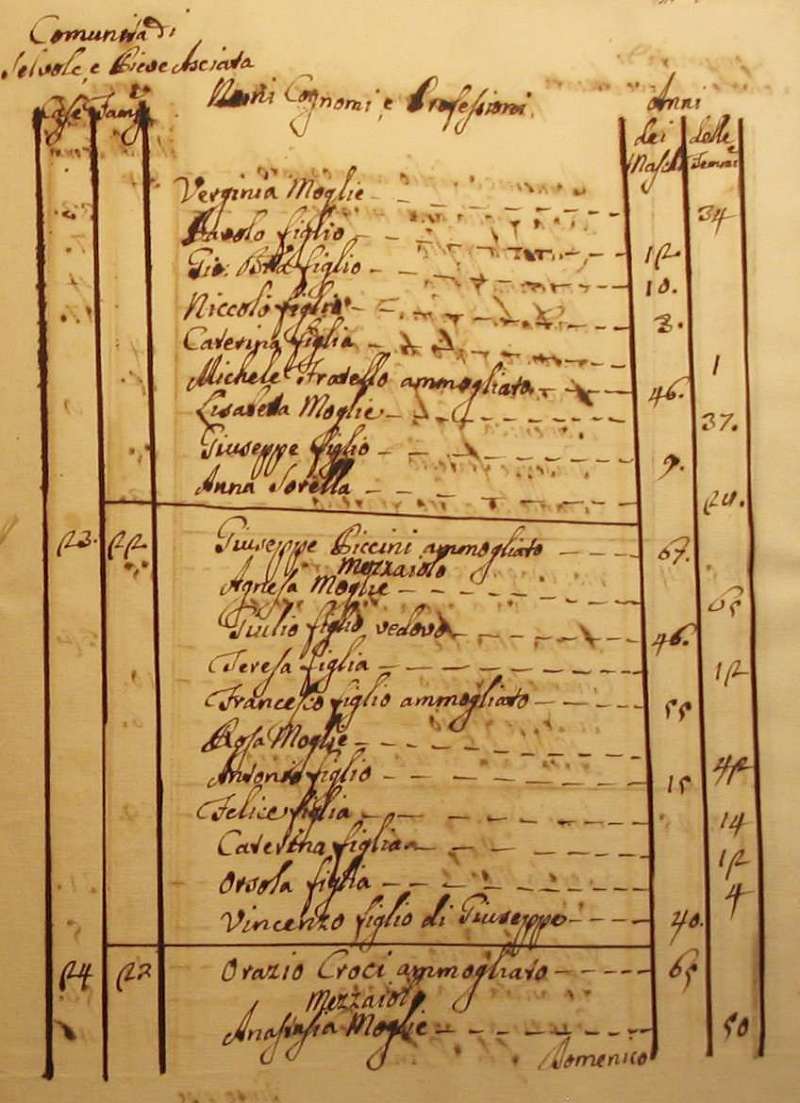 Comunità di
Selvole, e Pieve Asciata
Nomi Cognomi, e Professioni
Anni
Case Famig
dei Maschi
delle Femmi
Verginia Moglie 34
Pavolo figlio 12
Gio: Bta figlio 10.
Niccolò figlio 3.
Caterina figlia 1
Michele Fratello ammogliato 46.
Lisabetta Moglie 37.
Giuseppe figlio 9.
Anna Sorella 20.
23. 22. Giuseppe Piccini ammogliato 67.
Mezzaiolo
Agnesa Moglie 65
Giulio figlio vedovo 46.
Teresa figlia 12
Francesco figlio ammogliato 55
Rosa Moglie 42
Antonio figlio 15
Felice figlia 14
Caterina figlia 12
Orsola figlia 4
Vincenzo figlio di Giuseppe 40.
24 23 Orazio Croci ammogliato 65
Mezzaiolo
Anastasia Moglie 50
Domenico